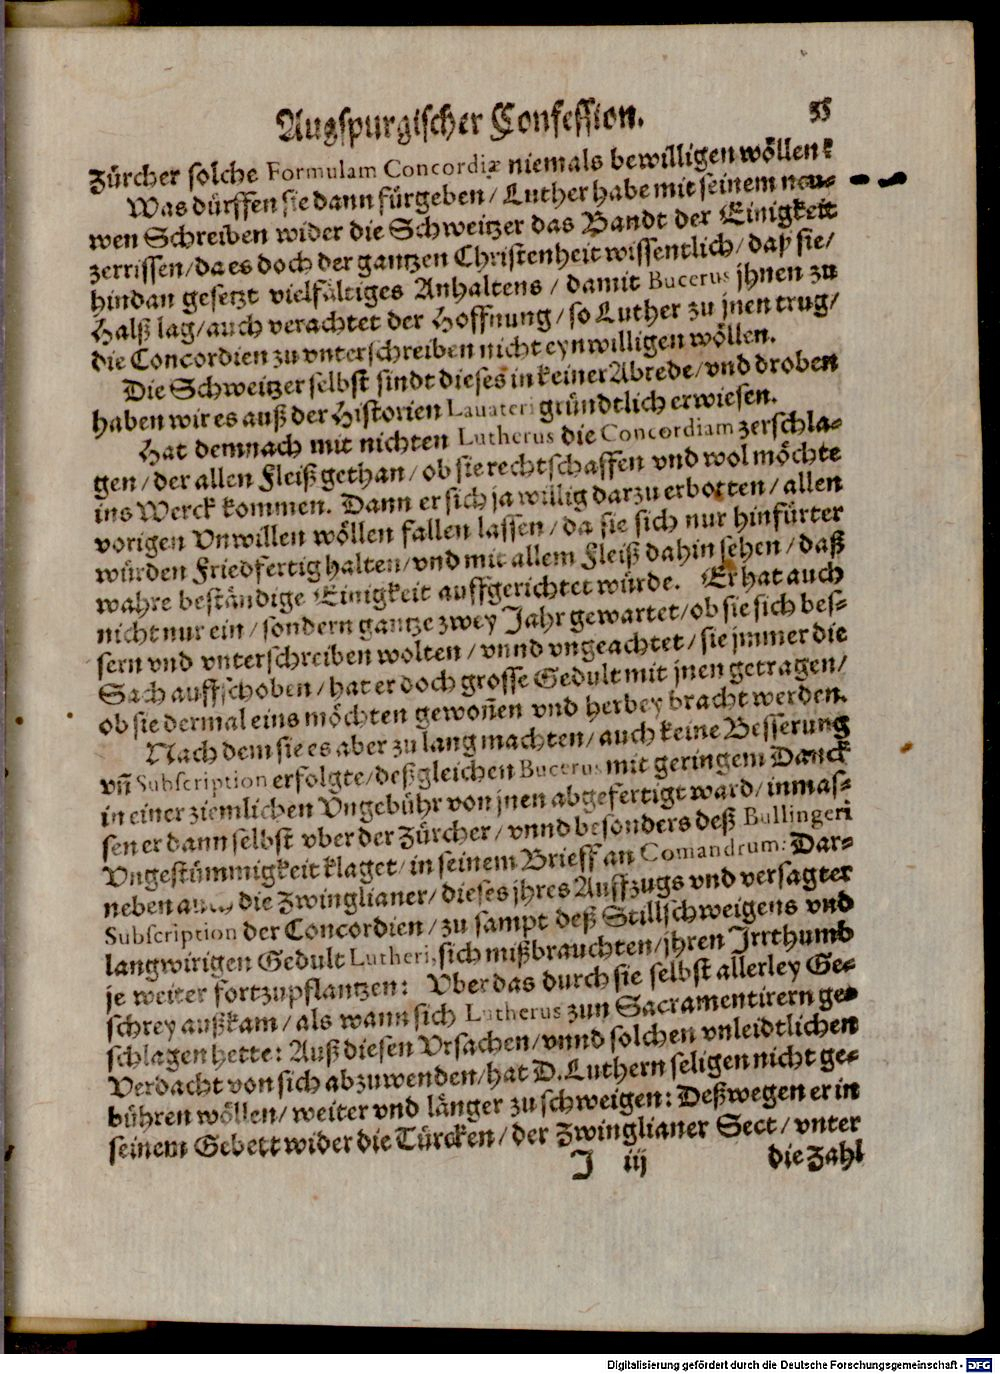 Augspurgischer Confession. 35
Zürcher solche Formulam Concordiæ niemals bewilligen wöllen?
Was dürffen sie dann fürgeben / Luther habe mit seinem neu-
wen Schreiben wider die Schweitzer das Bandt der Einigkeit
zerrissen / da es doch der gantzen Christenheit wissentlich / daß sie /
hindan gesetzt vielfältiges Anhaltens / damit Bucerus jhnen zu
Halß lag / auch verachtet der Hoffnung / so Luther zu jnen trug /
die Concordien zu vnterschreiben nicht eynwilligen wöllen.
Die Schweitzer selbst sindt dieses in keiner Abrede / vnd droben
haben wir es auß der Historien Lauateri gründtlich erwiesen.
Hat demnach mit nichten Lutherus die Concordiam zerschla-
gen / der allen Fleiß gethan / ob sie rechtschaffen vnd wol möchte
ins Werck kommen. Dann er sich ja willig darzu erbotten / allen
vorigen Vnwillen wöllen fallen lassen / da sie sich nur hinfürter
würden Friedfertig halten / vnd mit allem Fleiß dahin sehen / daß
wahre beständige Einigkeit auffgerichtet würde. Er hat auch
nicht nur ein / sondern gantze zwey Jahr gewartet / ob sie sich bes-
sern vnd vnterschreiben wolten / vnnd vngeachtet / sie jmmer die
Sach auffschoben / hat er doch grosse Gedult mit jnen getragen /
ob sie dermal eins möchten gewoñen vnd herbey bracht werden.
Nach dem sie es aber zu lang machten / auch keine Besserung
vñ Subscription erfolgte / deßgleichen Bucerus mit geringem Danck
in einer ziemlichen Vngebühr von jnen abgefertigt ward / inmas-
sen er dann selbst vber der Zürcher / vnnd besonders deß Bullingeri
Vngestümmigkeit klaget / in seinem Brieff an Comandrum: Dar-
neben auch die Zwinglianer / dieses jhres Auffzugs vnd versagter
Subscription der Concordien / zu sampt deß Stillschweigens vnd
langwirigen Gedult Lutheri, sich mißbrauchten / jhren Irrthumb
je weiter fortzupflantzen: Vber das durch sie selbst allerley Ge-
schrey außkam / als wann sich Lutherus zun Sacramentirern ge-
schlagen hette: Auß diesen Vrsachen / vnnd solchen vnleidtlichen
Verdacht von sich abzuwenden / hat D. Luthern seligen nicht ge-
bühren wöllen / weiter vnd länger zu schweigen: Deßwegen er in
seinem Gebett wider die Türcken / der Zwinglianer Sect / vnter
J iij die Zahl
Digitalisierung gefördert durch die Deutsche Forschungsgemeinschaft - DFG